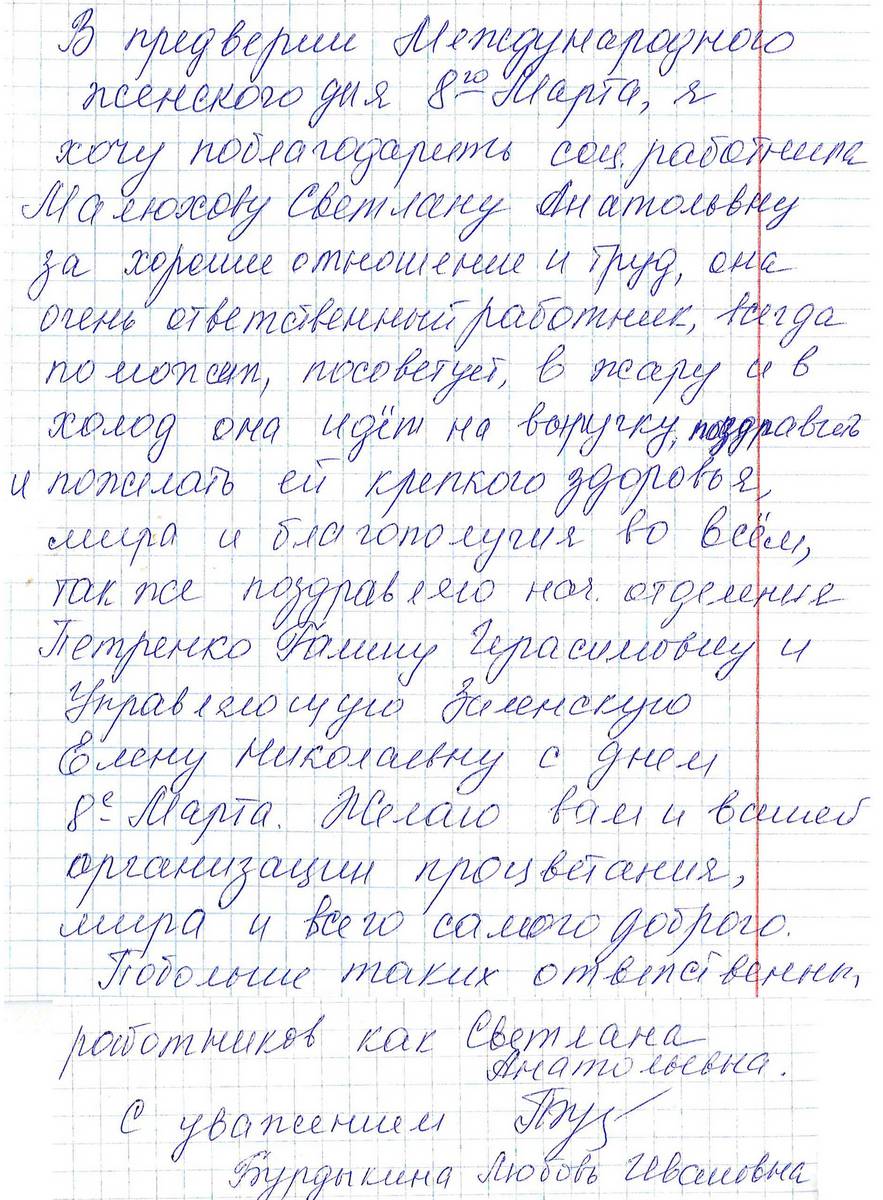 В предверии Международного
женского дня 8го Марта, я
хочу поблагодарить соц. работника
Малюхову Светлану Анатольвну
за хороше отношение и труд, она
очень ответственный работник, всегда
поможет, посоветует, в жару и в
холод она идёт на выручку, поздравить
и пожелать ей крепкого здоровья,
мира и благополучия во всём,
так же поздравляю нач. отделения
Петренко Галину Герасимовну и
Управляющую Зеленскую
Елену Николаевну с днем
8е Марта. Желаю вам и вашей
организации процветания,
мира и всего самого доброго.
Побольше таких ответственных
работников как Светлана
Анатольевна.
С уважением
Бурдыкина Любовь Ивановна